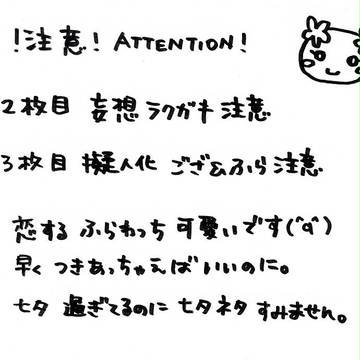 !注意! ATTENTION!
2枚目 妄想ラクガキ注意
3枚目 擬人化 ござ&ふら 注意
恋する ふらわっち 可愛いです(^q^)
早く つきあっちゃえば いいのに。
七夕 過ぎてるのに 七夕ネタ すみません。